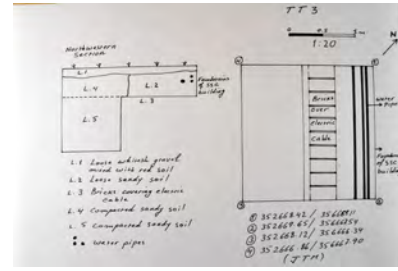 TT3
0 0.5 1
1:20
N
Northwestern
Section
L.1
L.4
L.2
Foundation
of SSC
building
L.3
L.5
L.1 Loose whitish gravel
mixed with red soil
L.2 Loose sandy soil
L.3 Bricks covering electric
cable
L.4 Compacted sandy soil
L.5 Compacted sandy soil
water pipes
Bricks
over
electric
cable
water
Pipes
Foundation
of SSC
building
352668.42/
② 352669.65/
352668.12/ 356666.34
④ 352666.86/ 356667.90
(JTM)